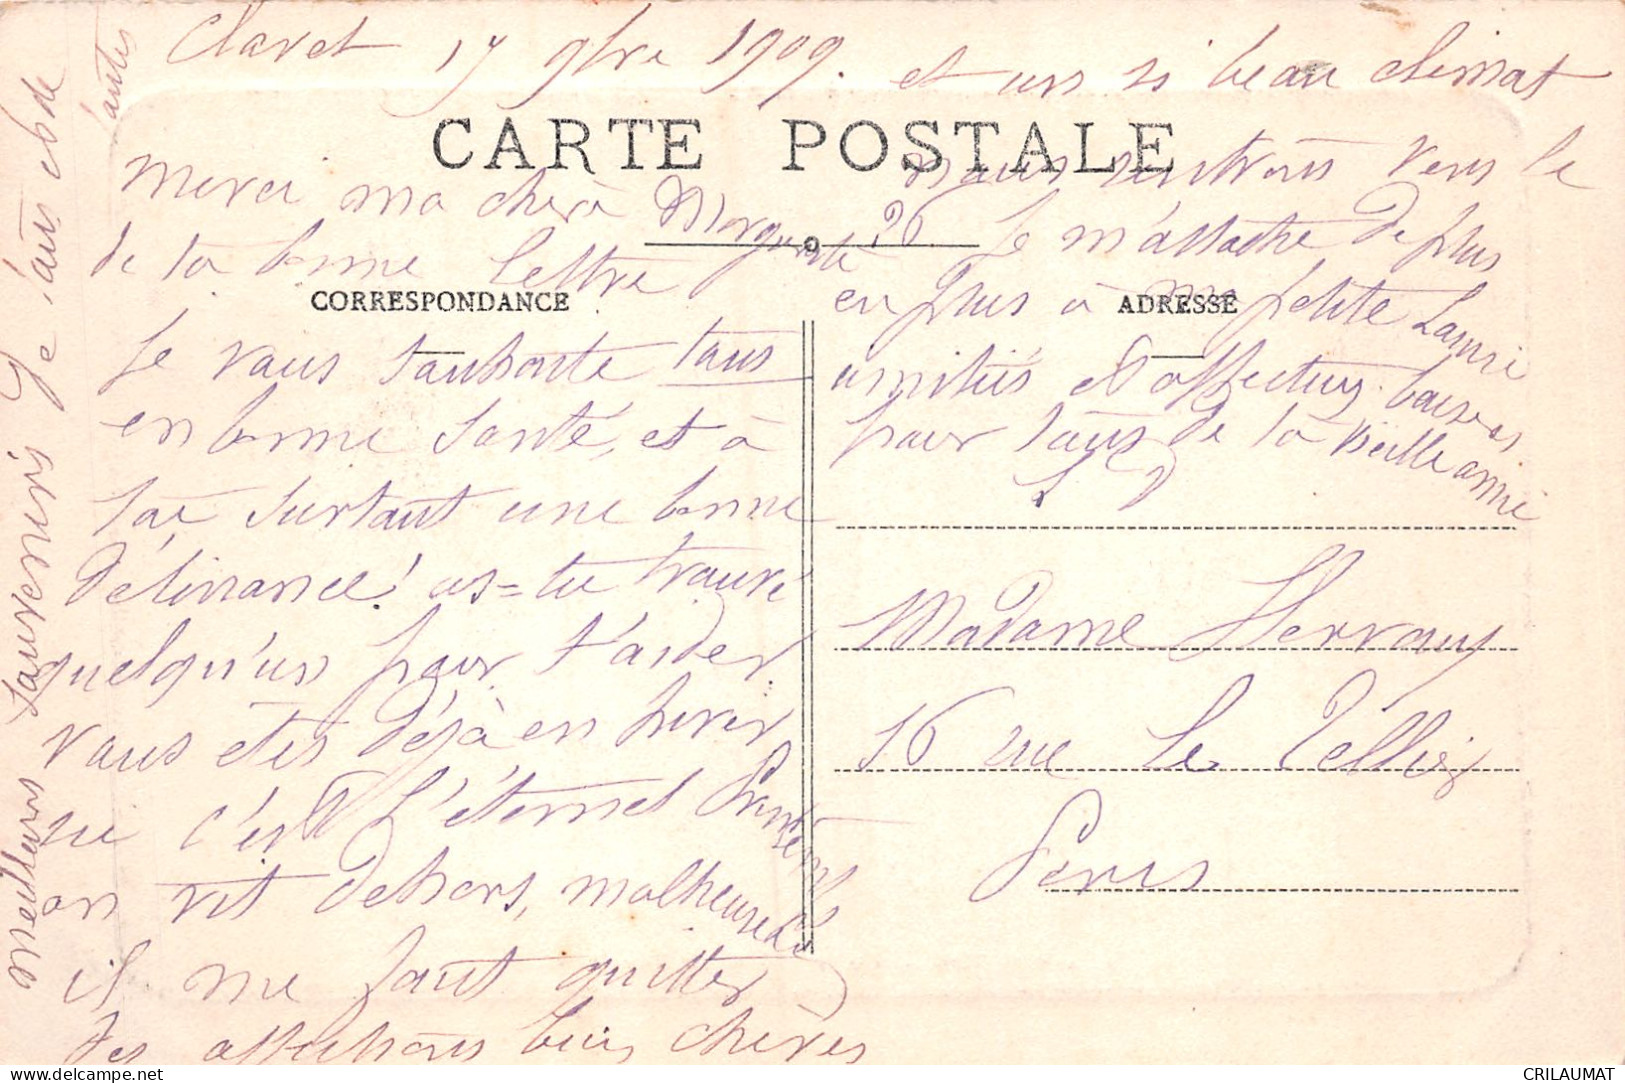 Claret 17 9bre 1909.
CARTE POSTALE
CORRESPONDANCE
merci ma chère Marguerite
de ta bonne lettre
je vous souhaite tous
en bonne santé, et à
toi surtout une bonne
délivrance! as-tu trouvé
quelqu'un pour t'aider
vous êtes déjà en hiver
ici c'est l'éternel printemps
on vit dehors, malheureus
il me faut quitter
des affections bien chères
et un si beau climat
nous rentrons vers le
26 Je m'attache de plus
en plus à ma petite Laurie
amitiés et affectueux baisers
pour tous de la vieille amie
ADRESSE
Madame Herrouy
16 rue Le Tellier
Paris
meilleurs souvenirs Je vous
toutes
www.delcampe.net
CRILAUMAT